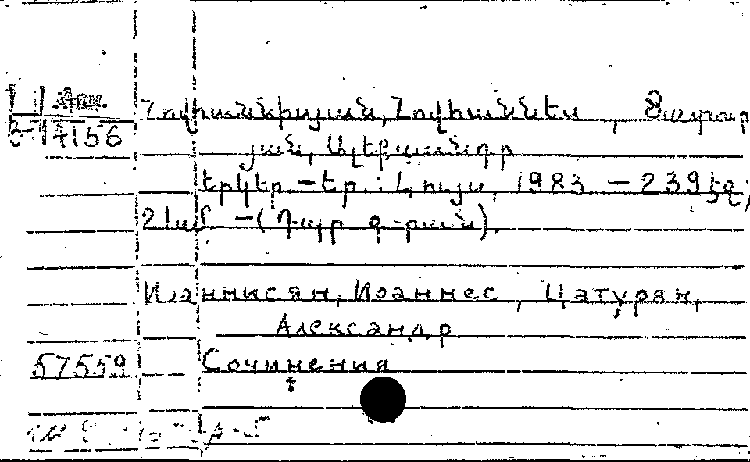 Հովհաննիսյան, Հովհաննես, Ծատուր
14156
յան, Ալեքսանդր
Երկեր. – Եր.: Լույս, 1983. – 239 էջ;
21սմ. – (Դպր. գ-րան).
Иоаннисян, Иоаннес, Цатурян,
Александр
57559 Сочинения